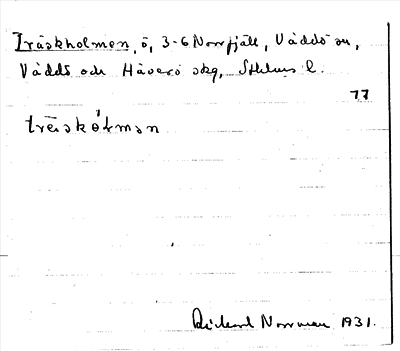 Träskholmen, ö, 3-6 Norrfjäll, Väddö sn,
Väddö och Häverö skg, Sthlms l.
77
träskólmən
Rickard Norrman 1931.